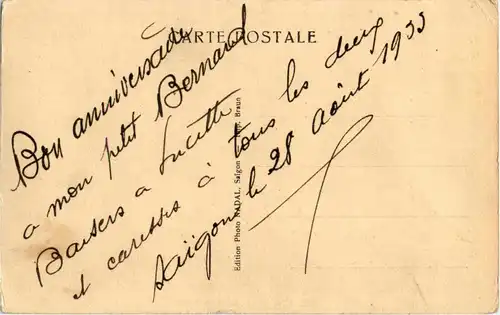 CARTE POSTALE
Bon anniversaire
a mon petit Bernard
Baisers a Lucette
et caresses à tous les deux
Saïgon le 28 Août 1933
Edition Photo NADAL, Saigon Braun